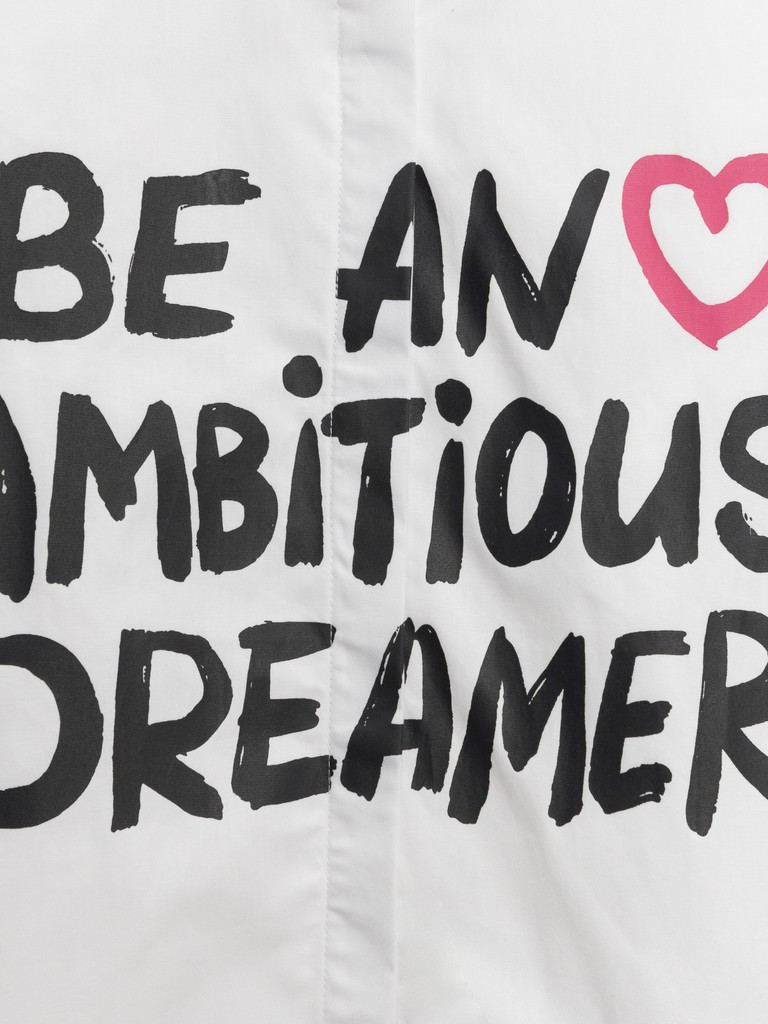 BE AN
AMBiTiOUS
DREAMER